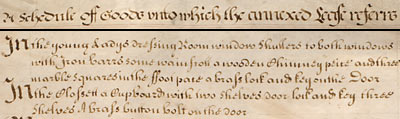 A Schedule Of Goods unto which the annexed Lease referrs
In the young Ladys dressing Room window Shutters to both windows
with Iron barrs some wainscot a wooden Chimney piece and three
marble squares in the floor pace a brass lock and key on the Door
In the Clossett a Cupboard with two Shelves door lock and key three
Shelves A brass button bolt on the door